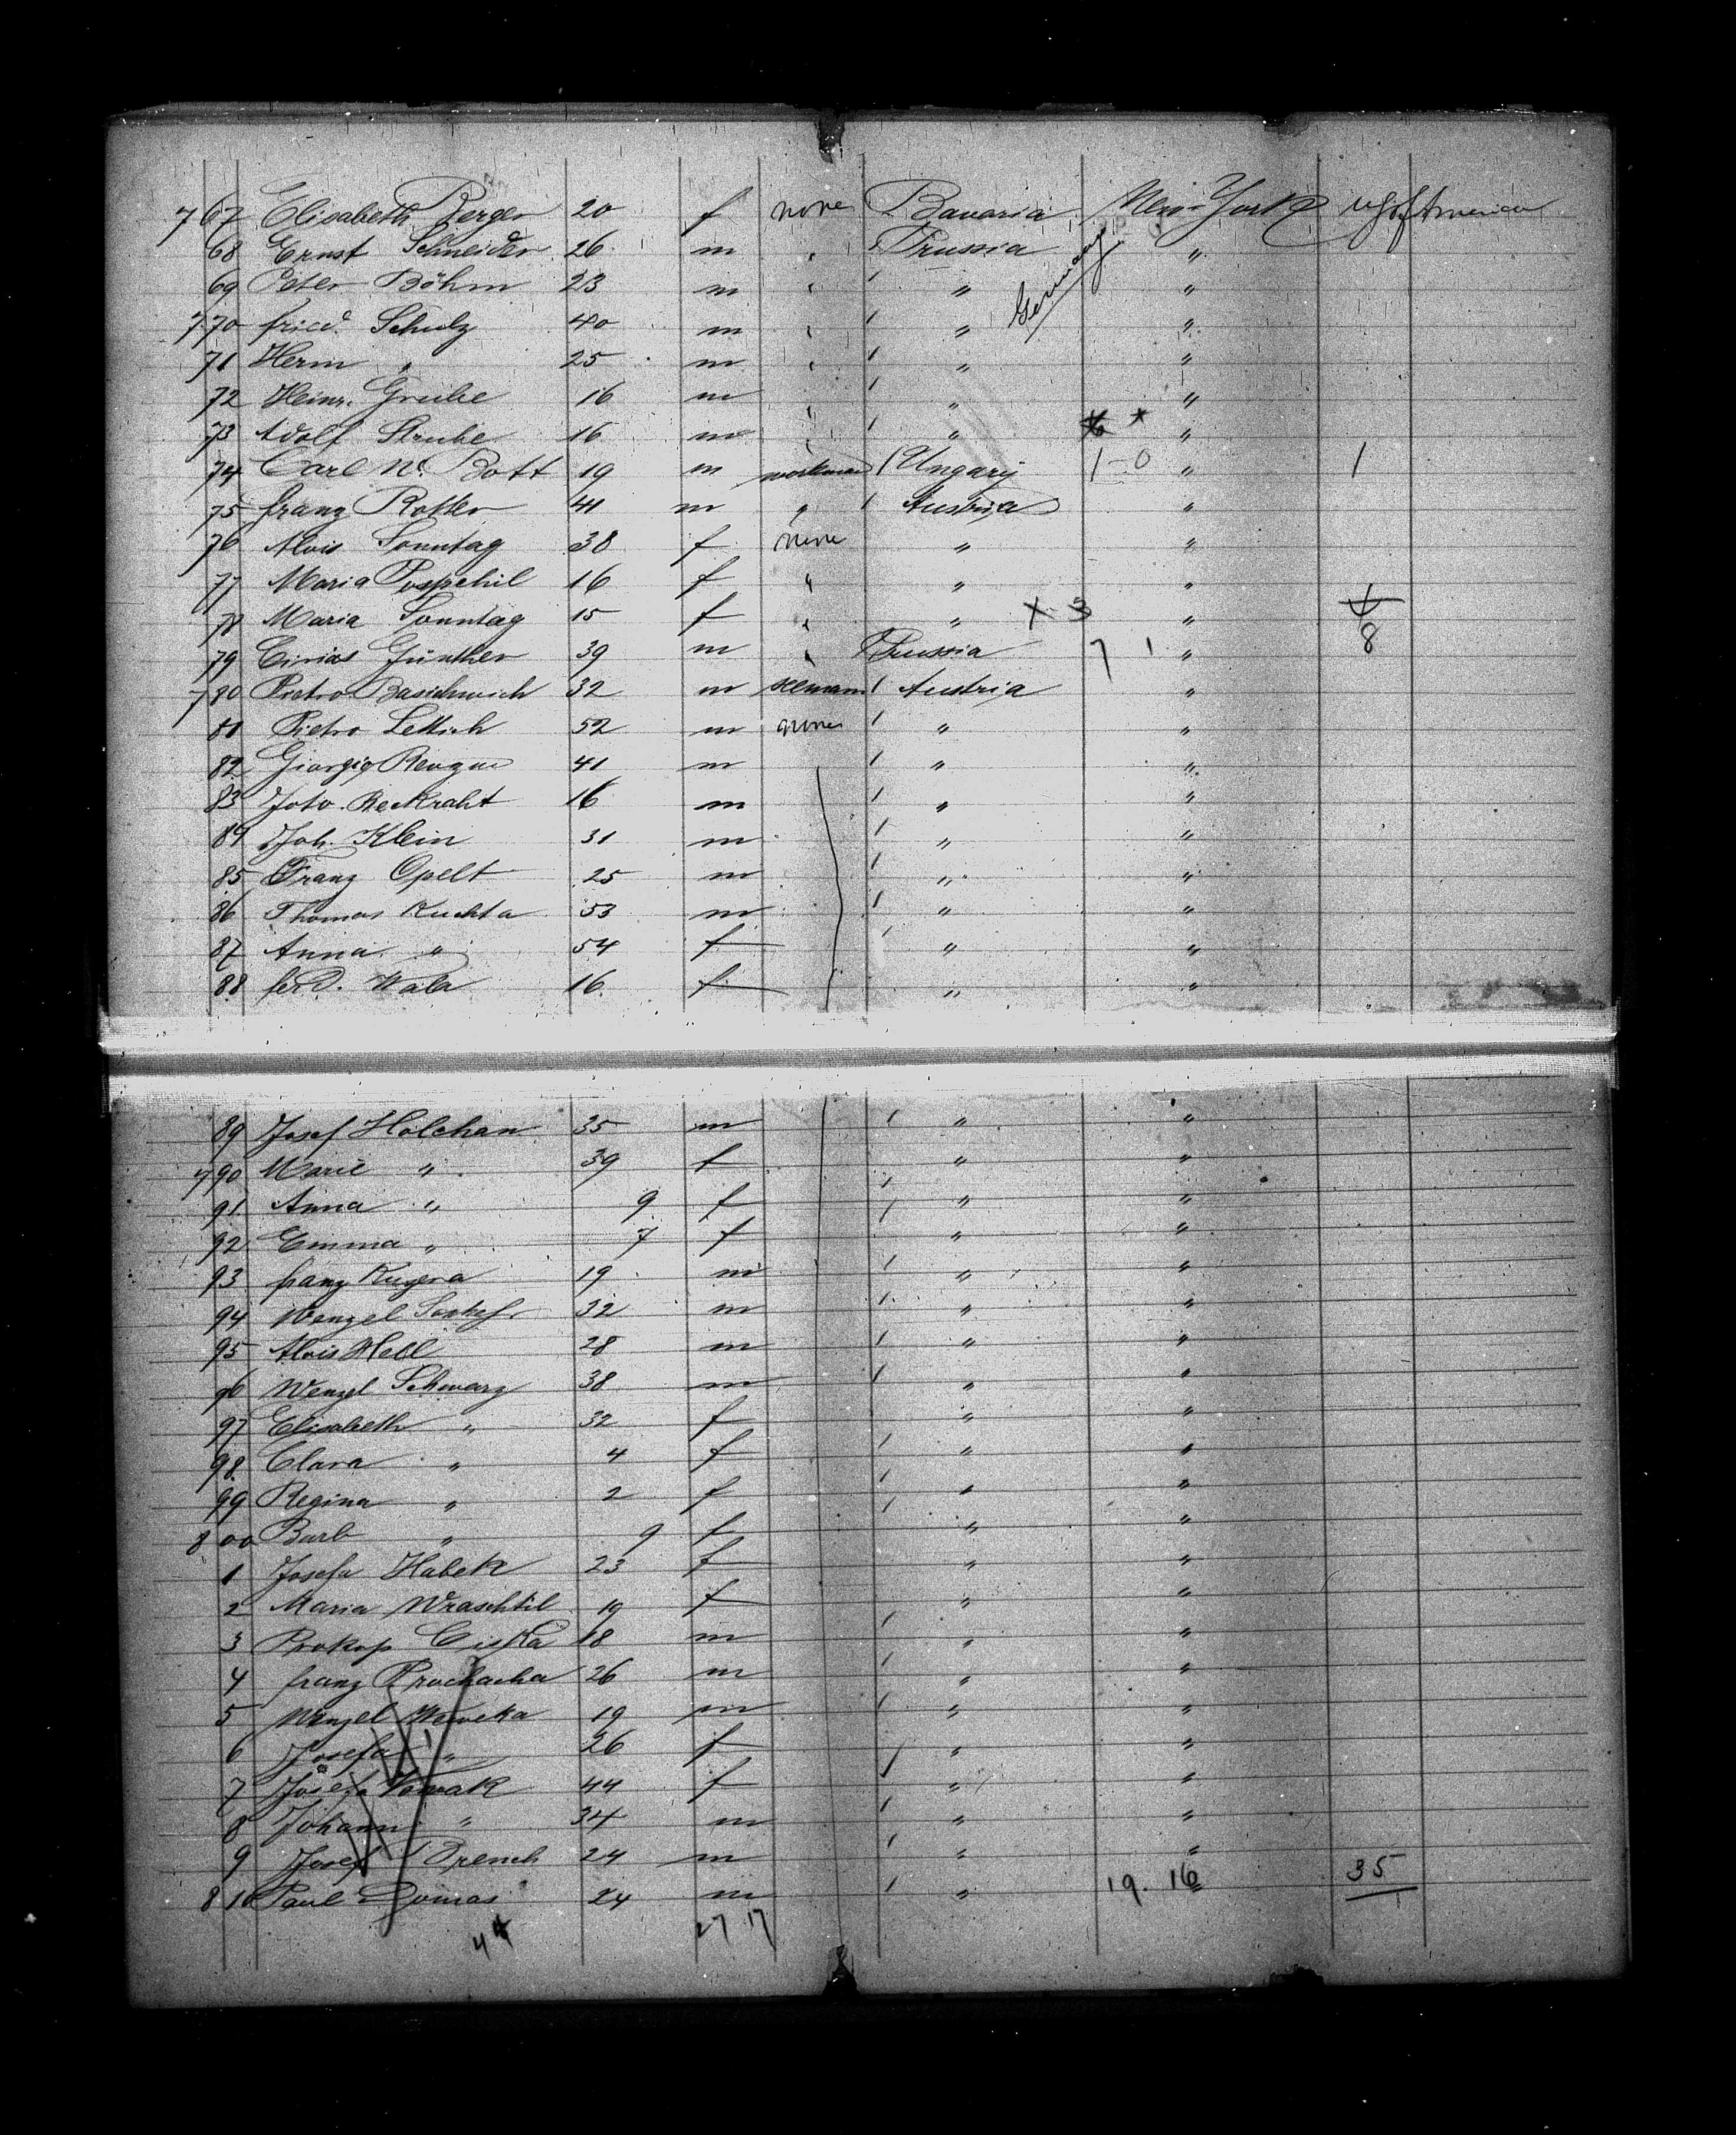 767 Elisabeth Berger 20 f none Bavaria New-York US of America
68 Ernst Schneider 26 m " Prussia "
69 Peter Böhm 23 m " " Germany "
770 Fried. Schulz 40 m " " "
71 Herm " 25 m " " "
72 Heinr. Grube 16 m " " "
73 Adolf Strube 16 m " " "
74 Carl W. Bott 19 m workman Ungary 1-0 " 1
75 Franz Rotter 41 m " Austria "
76 Alois Sonntag 38 f none " "
77 Maria Pospchil 16 f " " "
78 Maria Sonntag 15 f " " X 3 "
79 Günther 39 m " Prussia 7 1 " 8
780 Pietro 32 m seeman Austria "
81 Pietro Lettich 52 m none " "
82 Giorgio 41 m " "
83 Beckraht 16 m " "
84 Joh. Klein 31 m " "
85 Franz Opelt 25 m " "
86 Thomas Kuchta 53 m " "
87 Anna " 54 f " "
88 Ferd. Wala 16 f " "
89 Josef Holchan 35 m " "
790 Marie " 39 f " "
91 Anna " 9 f " "
92 Emma " 7 f " "
93 Franz Kugera 19 m " "
94 Wenzel 32 m " "
95 Alois Hell 28 m " "
96 Wenzl Schwarz 38 m " "
97 Elisabeth " 32 f " "
98 Clara " 4 f " "
99 Regina " 2 f " "
800 Barb " 9 f " "
1 Josefa Habek 23 f " "
2 Maria Wraschtil 19 f " "
3 Prokop Ciska 18 m " "
4 Franz Prochacha 26 m " "
5 Wenzel 19 m " "
6 Josefa " 26 f " "
7 Josefa Nowak 44 f " "
8 Johann " 34 m " "
9 Josef Prench 24 m " "
810 Paul Domas 24 m " 19. 16 " 35
44 27 17